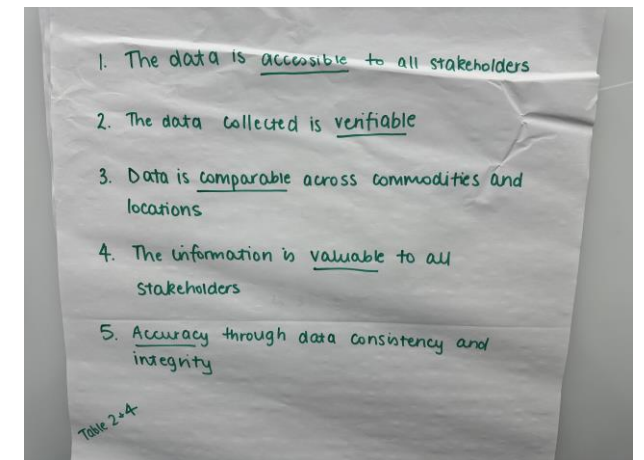 1. The data is accessible to all stakeholders
2. The data collected is verifiable
3. Data is comparable across commodities and
locations
4. The information is valuable to all
stakeholders
5. Accuracy through data consistency and
integrity
Table 2+4